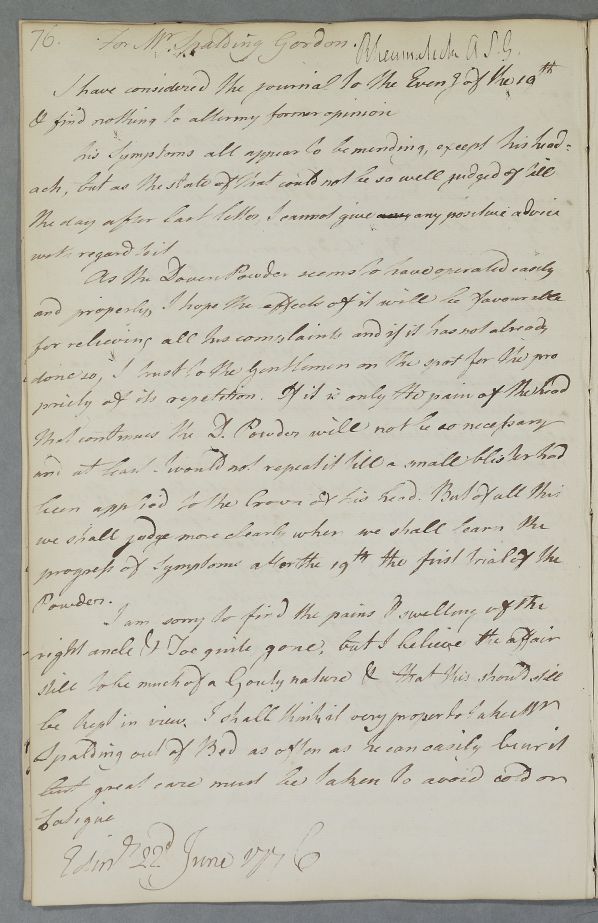 76. For Mr. Spalding Gordon. Rheumatick A.S.G.
I have considered the journal to the Eveng of the 19th
& find nothing to alter my former opinion
his Symptoms all appear to be mending, except his head-
ach, but as the state of that could not be so well judged of till
the day after last letter, I cannot give any any positive advice
with regard to it
As the Dovers Powder seems to have operated easily
and properly, I hope the effects of it will be favourable
for relieving all his complaints and if it has not already
done so, I trust to the Gentlemen on the spot for the pro
priety of its repetition. If it is only the pain of the head
that continues the D. Powder will not be so necessary
and at least I would not repeat it till a small blister had
been applied to the Crown of his head. But of all this
we shall judge more clearly when we shall learn the
progress of Symptoms after the 19th the first trial of the
Powder.
I am sorry to find the pains & swelling of the
right ancle & Toe quite gone, but I believe the affair
still to be much of a Gouty nature & that this should still
be kept in view. I shall think it very proper to take Mr
Spalding out of Bed as often as he can easily bear it
but great care must be taken to avoid cold or
fatigue
Edinr. 22d June 1776